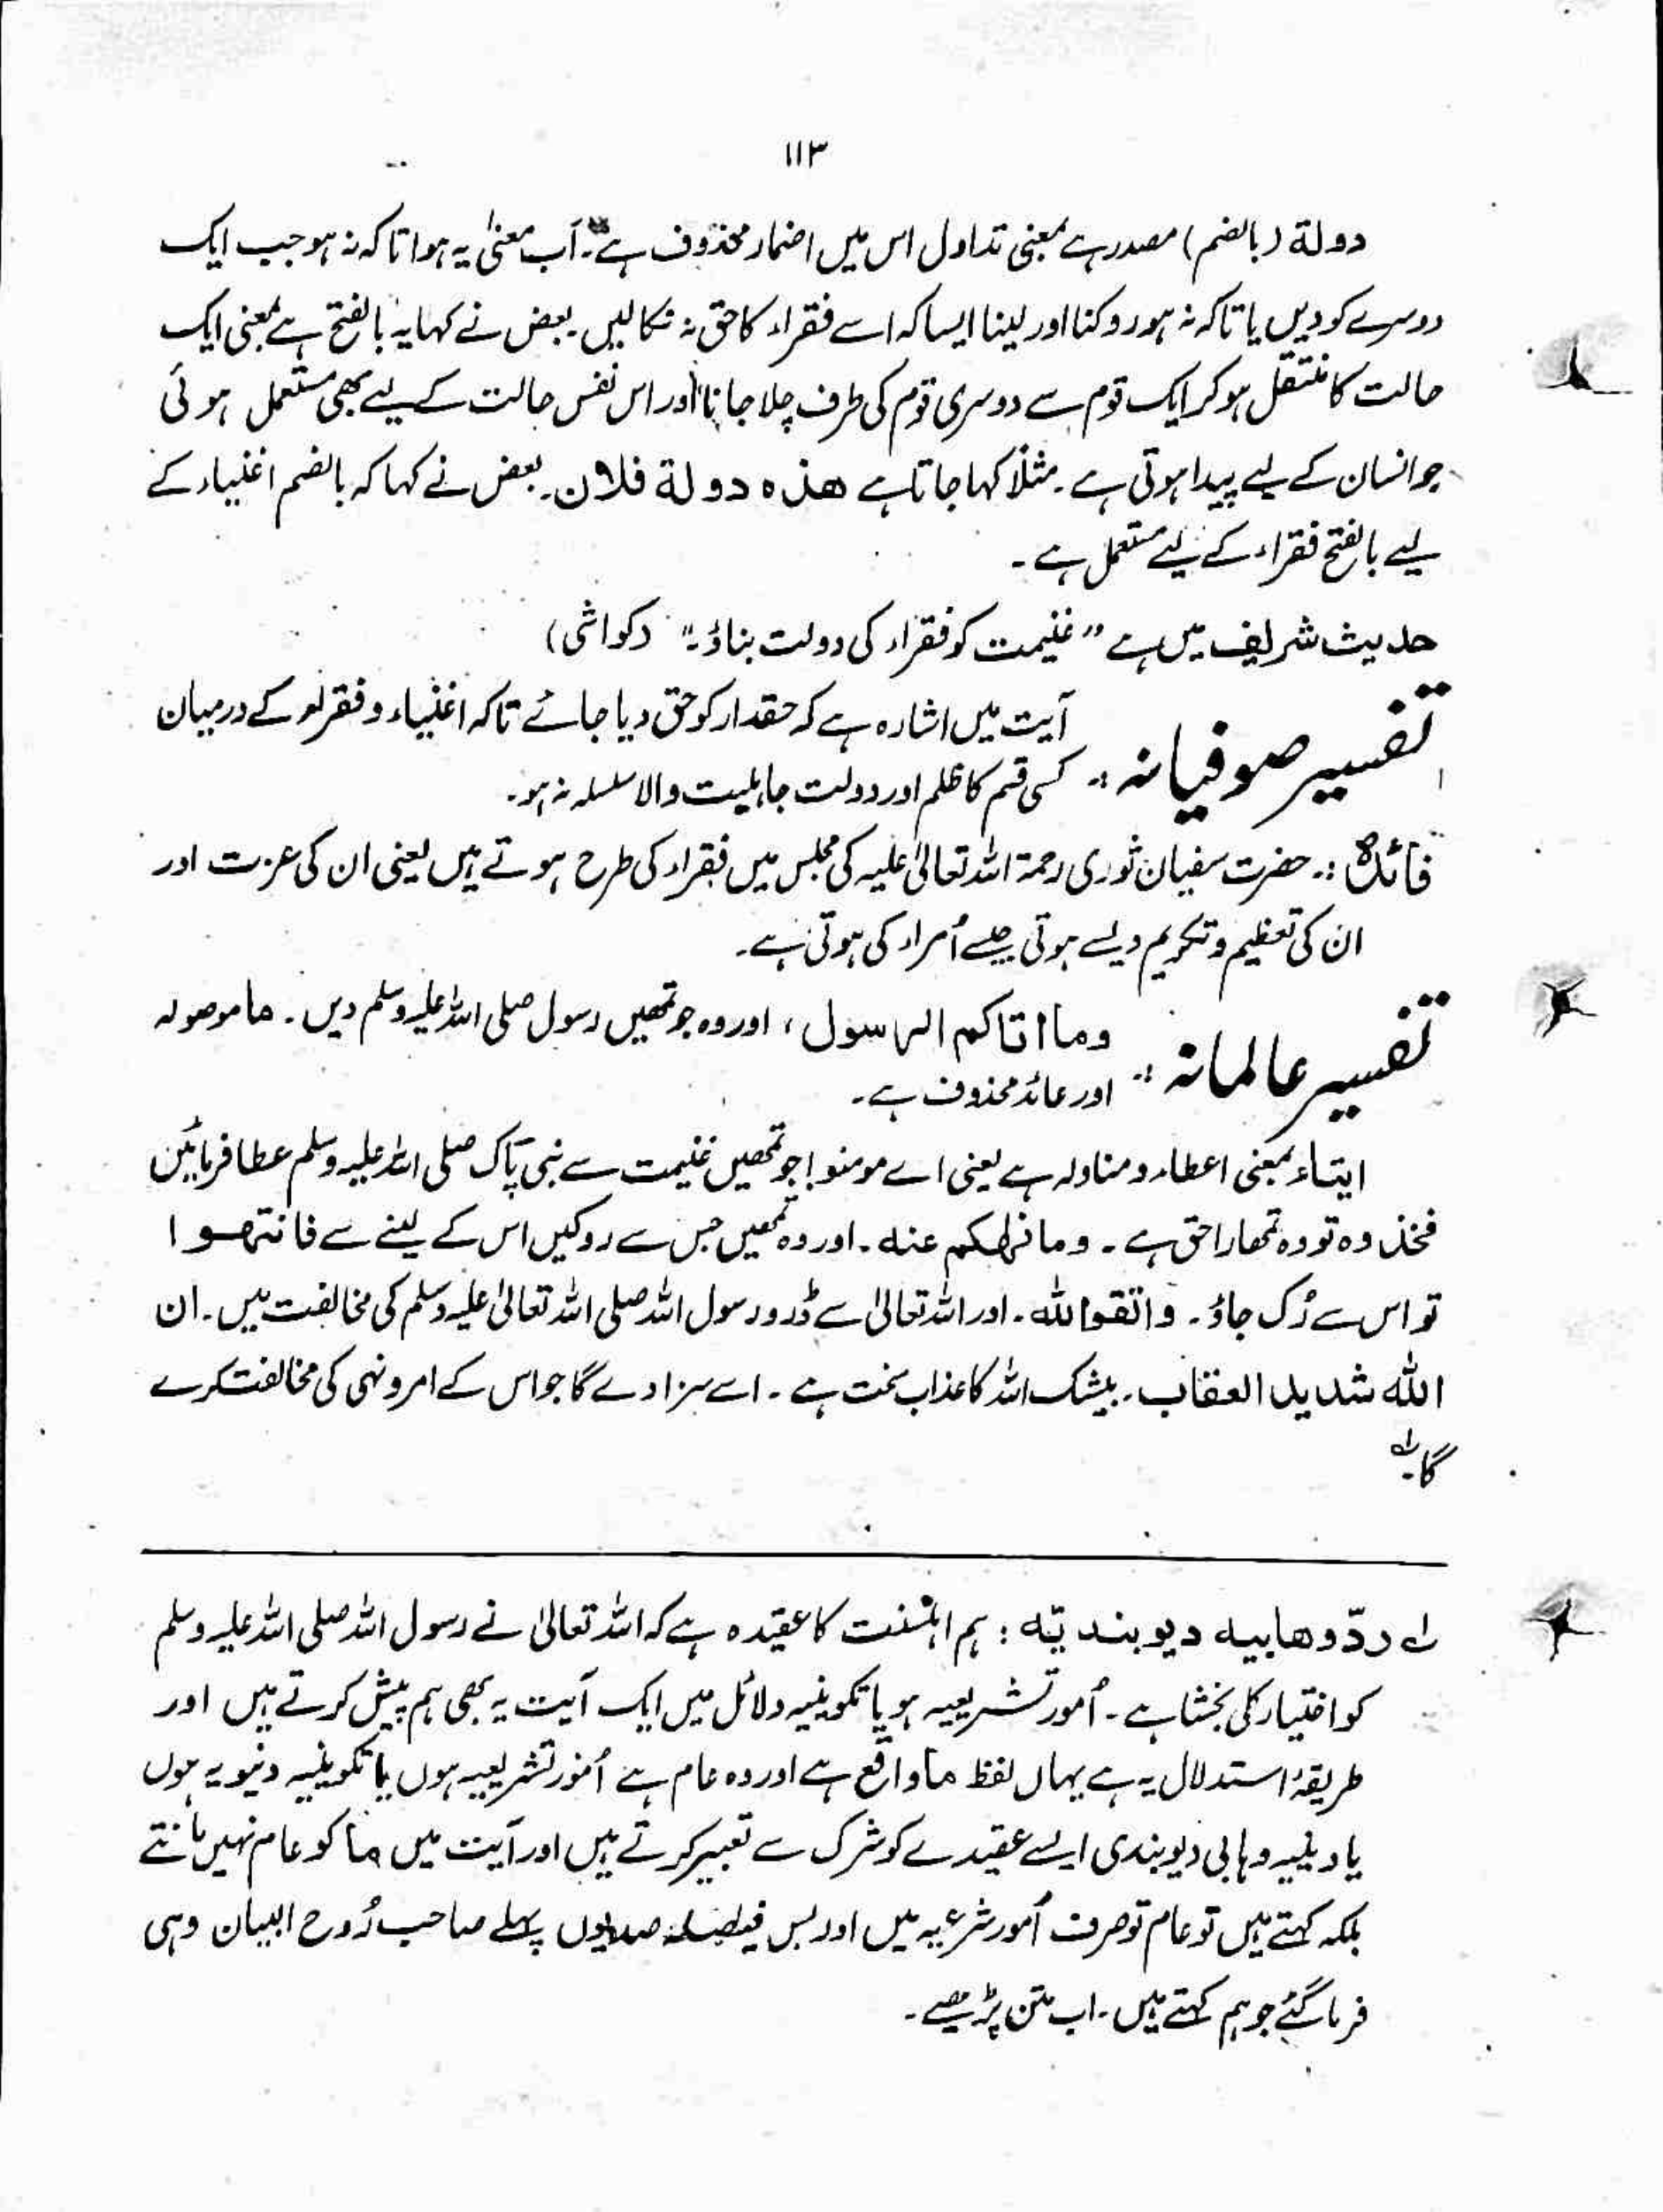 ۱۱۳
دولة (بالضم) مصدر ہے بمعنی تداول اس میں اضمار محذوف ہے۔ اَب معنیٰ یہ ہوا تاکہ نہ ہو جب ایک
دوسرے کو دیں یا تاکہ نہ ہو روکنا اور لینا ایسا کہ اسے فقراء کا حق نہ نکالیں۔ بعض نے کہا یہ بالفتح ہے بمعنی ایک
حالت کا منتقل ہو کر ایک قوم سے دوسری قوم کی طرف چلا جانا اور اس نفس حالت کے لیے بھی مستعمل ہوئی
جو انسان کے لیے پیدا ہوتی ہے۔ مثلاً کہا جاتا ہے هذه دولة فلان۔ بعض نے کہا کہ بالضم اغنیاء کے
لیے بالفتح فقراء کے لیے مستعمل ہے۔
حدیث شریف میں ہے "غنیمت کو فقراء کی دولت بناؤ۔" (کواشی)
تفسیر صوفیانہ :۔ آیت میں اشارہ ہے کہ حقدار کو حق دیا جائے تاکہ اغنیاء و فقراء کے درمیان
کسی قسم کا ظلم اور دولت جاہلیت والا سلسلہ نہ ہو۔
فائدہ :۔ حضرت سفیان ثوری رحمۃ اللہ تعالیٰ علیہ کی مجلس میں فقراء کی طرح ہوتے ہیں یعنی ان کی عزت اور
ان کی تعظیم و تکریم ویسے ہوتی جیسے اُمراء کی ہوتی ہے۔
تفسیر عالمانہ :۔ وما اتاکم الرسول، اور وہ جو تمھیں رسول صلی اللہ علیہ وسلم دیں۔ ما موصولہ
اور عائد محذوف ہے۔
ایتاء بمعنی اعطاء و مناولہ ہے یعنی اے مومنو! جو تمھیں غنیمت سے نبی پاک صلی اللہ علیہ وسلم عطا فرمائیں
فخذوہ تو وہ تمھارا حق ہے۔ وما نہٰکم عنه۔ اور وہ تمھیں جس سے روکیں اس کے لینے سے فانتهوا
تو اس سے رُک جاؤ۔ واتقوا الله۔ اور اللہ تعالیٰ سے ڈرو رسول اللہ صلی اللہ تعالیٰ علیہ وسلم کی مخالفت میں۔ ان
الله شدید العقاب۔ بیشک اللہ کا عذاب سخت ہے۔ اسے سزا دے گا جو اس کے امر و نہی کی مخالفت کرے
گا۔ لہ
لہ ردّ وهابیه دیوبندیّه : ہم اہلسنت کا عقیدہ ہے کہ اللہ تعالیٰ نے رسول اللہ صلی اللہ علیہ وسلم
کو اختیار کلی بخشا ہے۔ اُمور تشریعیہ ہو یا تکوینیہ دلائل میں ایک آیت یہ بھی ہم پیش کرتے ہیں اور
طریقۂ استدلال یہ ہے یہاں لفظ ما واقع ہے اور وہ عام ہے اُمور تشریعیہ ہوں یا تکوینیہ دنیویہ ہوں
یا دینیہ وہابی دیوبندی ایسے عقیدے کو شرک سے تعبیر کرتے ہیں اور آیت میں ما کو عام نہیں مانتے
بلکہ کہتے ہیں تو عام تو صرف اُمور شرعیہ میں اور بس فیصلہ صدیوں پہلے صاحب رُوح البیان وہی
فرما گئے جو ہم کہتے ہیں۔ اب متن پڑھیے۔